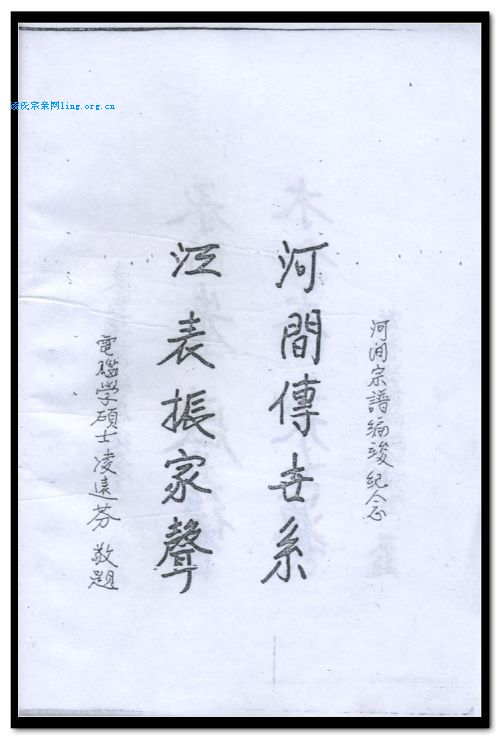 凌氏宗亲网ling.org.cn
河间宗譜编竣纪念
河間傳世系
江表振家聲
電腦學碩士凌遠芬 敬題